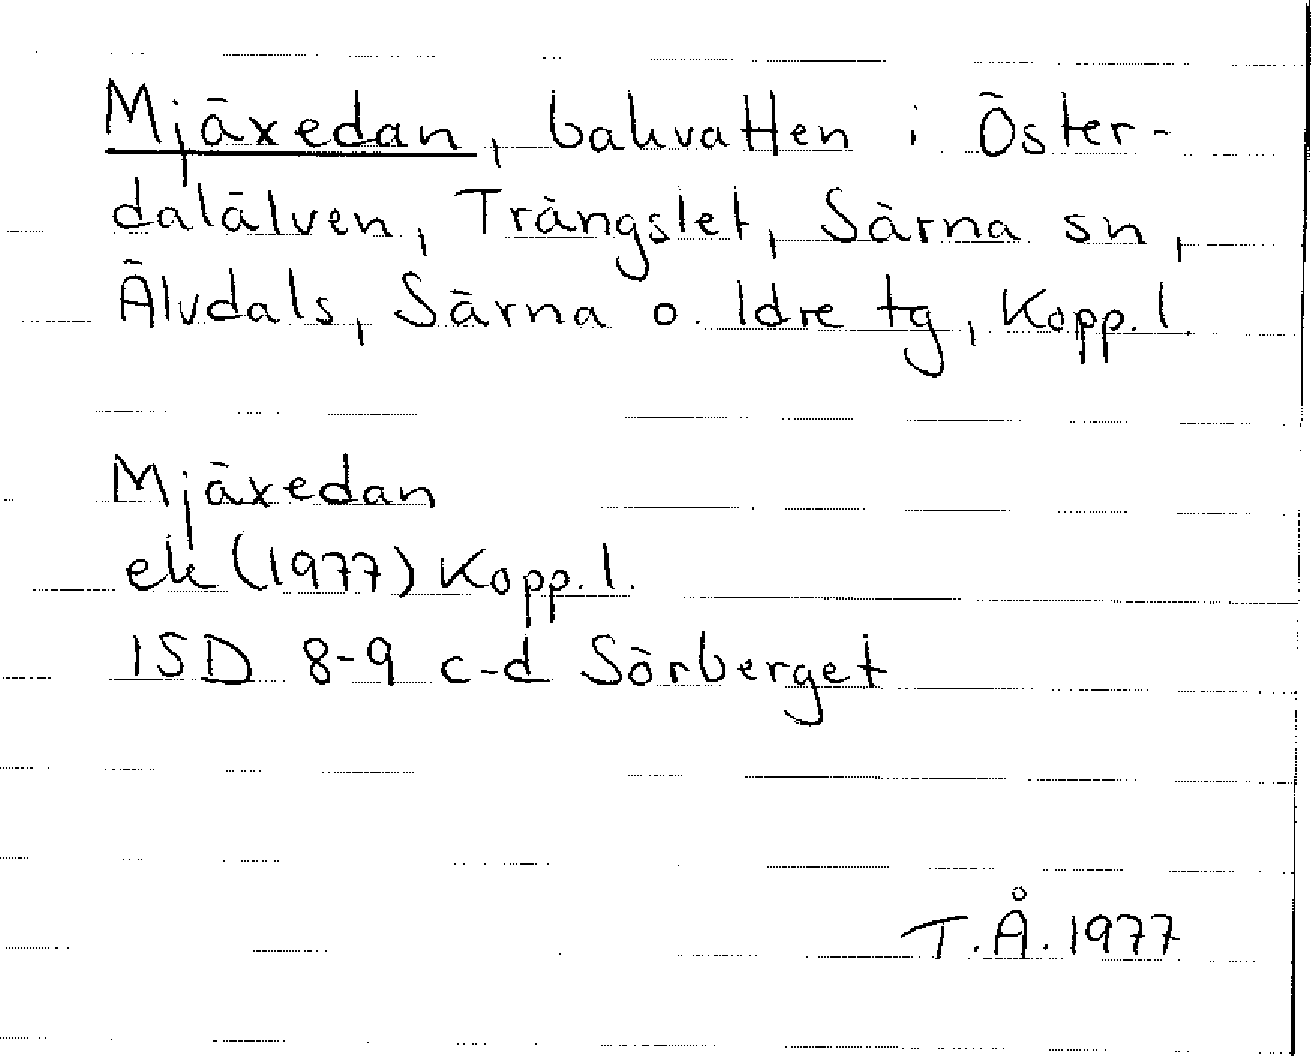 Mjäxedan, bakvatten i Öster-
dalälven, Trängslet, Särna sn,
Älvdals, Särna o. Idre tg, Kopp. l.
Mjäxedan
ek (1977) Kopp. l.
15D 8-9 c-d Sörberget
T.Å. 1977